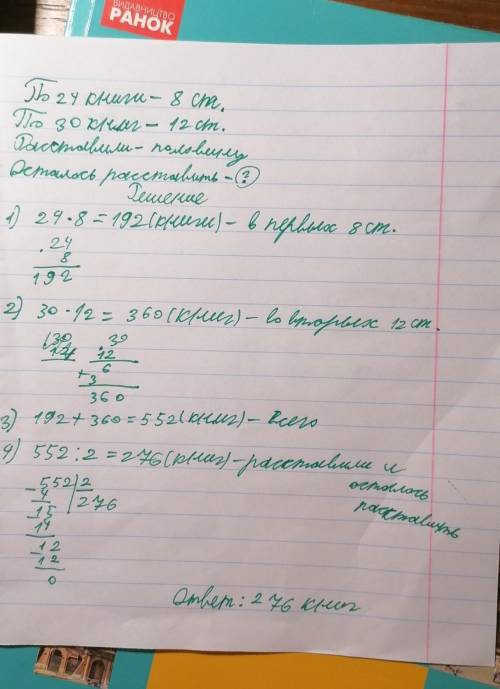 ВИДАВНИЦТВО
РАНОК
По 24 книги - 8 ст.
По 30 книг - 12 ст.
Расставили - половину
Осталось расставить - ?
Решение
1) 24 · 8 = 192 (книги) - в первых 8 ст.
24
8
192
2) 30 · 12 = 360 (книг) - во вторых 12 ст.
30 30
12 12
6
+ 3
360
3) 192 + 360 = 552 (книг) - всего
4) 552 : 2 = 276 (книг) - расставили и
осталось
расставить
- 552 | 2
4 276
- 15
14
- 12
12
0
Ответ: 276 книг